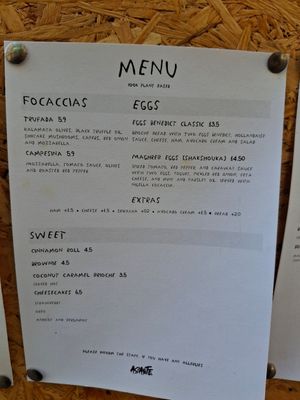 MENU
100% PLANT BASED
FOCACCIAS
TRUFADA 5.9
KALAMATA OLIVES, BLACK TRUFFLE OIL,
SHIITAKE MUSHROOMS, CAPERS, RED ONION
AND MOZZARELLA.
CAMPESINA 5.9
MOZZARELLA, TOMATO SAUCE, OLIVES
AND ROASTED RED PEPPER.
EGGS
EGGS BENEDICT CLASSIC 13.5
BRIOCHE BREAD WITH TWO EGGS BENEDICT, HOLLANDAISE
SAUCE, CHEESE, HAM, AVOCADO CREAM AND SALAD
MAGHREB EGGS (SHAKSHOUKA) 14.50
SPICED TOMATO, RED PEPPER, AND CARROT SAUCE
WITH TWO EGGS, YOGURT, PICKLED RED ONION, FETA
CHEESE, AND MINT AND PARSLEY OIL. SERVED WITH
FOCACCIA.
EXTRAS
HAM +1.5 • CHEESE +1.5 • +2 • AVOCADO CREAM +1.5 • BREAD +2.0
SWEET
CINNAMON ROLL 4.5
BROWNIE 4.5
COCONUT CARAMEL BRIOCHE 3.5
CHEESECAKES 4.5
STRAWBERRY
OREO
PLEASE INFORM THE STAFF IF YOU HAVE ANY ALLERGIES